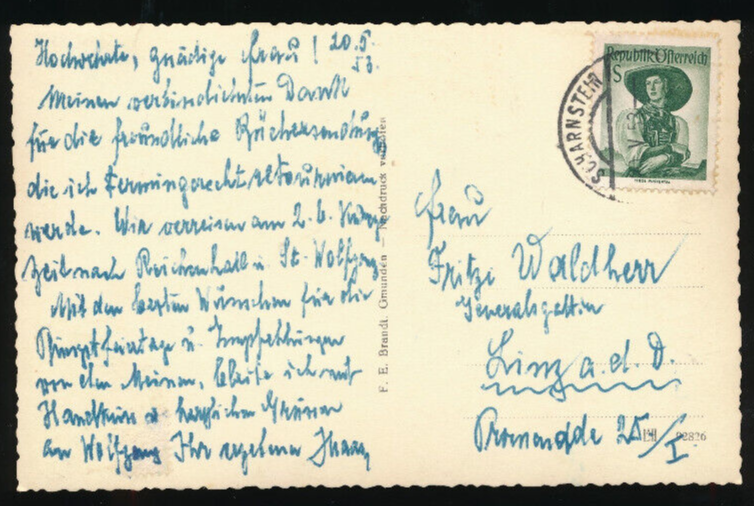 Hochverehrte, gnädige Frau! 20.5.
53.
Meinen verbindlichsten Dank
für die freundliche Büchersendung
die ich termingerecht retournieren
werde. Wir verreisen am 2.6.
zeit nach Reichenhall u. St. Wolfgang
Mit den besten Wünschen für die
Pfingstfeiertage u. Empfehlungen
von den Meinen, bleibe ich mit
Handkuss u. herzlichen Grüssen
an Wolfgang Ihr ergebener
F. E. Brandt, Gmunden — Nachdruck verboten
Republik Österreich
S
SCHARNSTEIN
Frau
Fritzi Waldherr
Generalsgattin
Linz a. d. D.
Promenade 25/I
92826